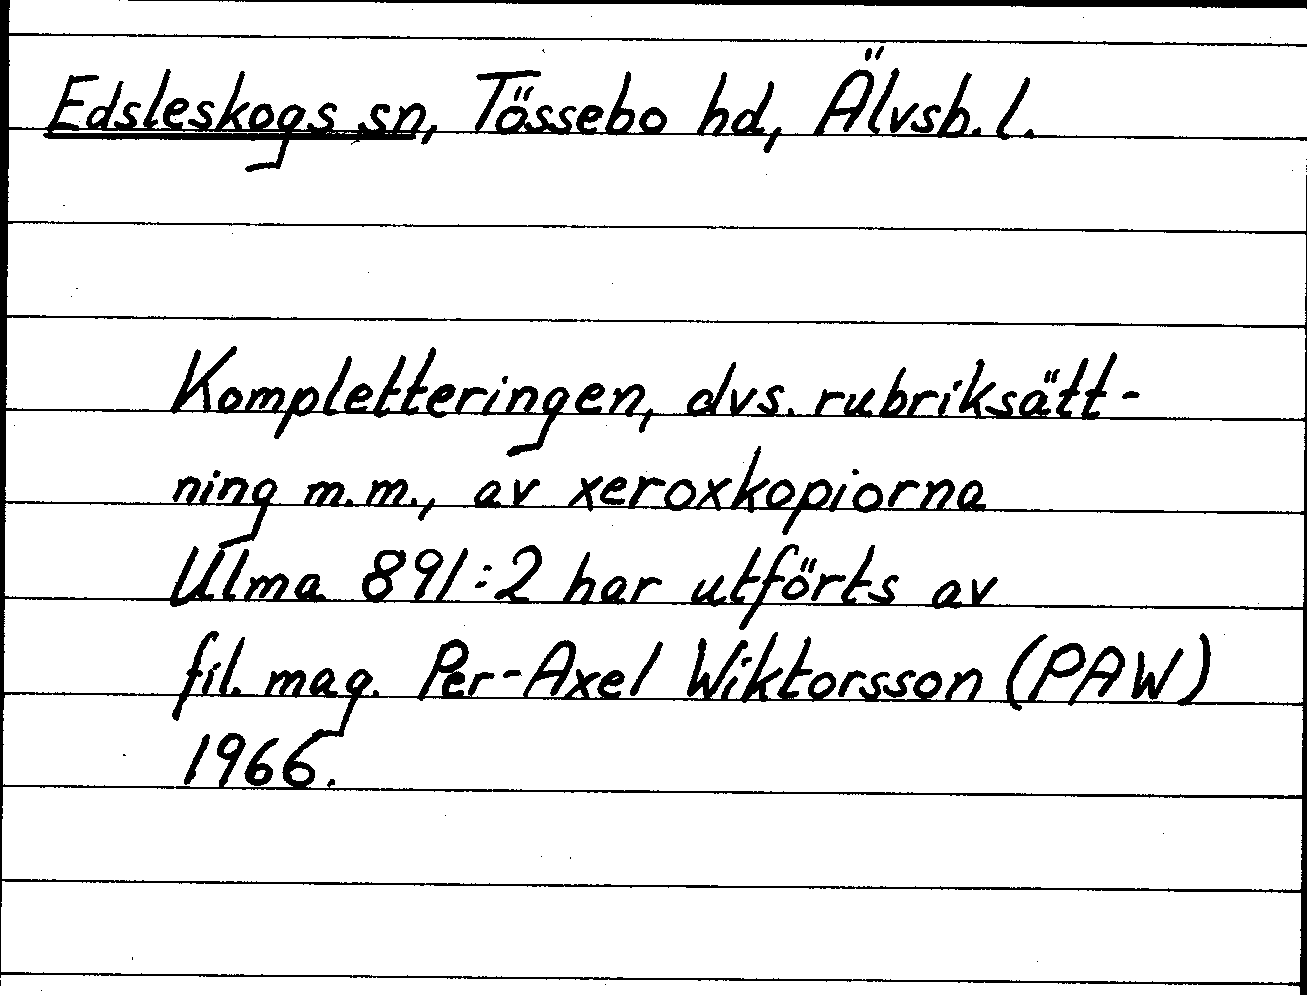 Edsleskogs sn, Tössebo hd, Älvsb. l.
Kompletteringen, dvs. rubriksätt-
ning m.m., av xeroxkopiorna
Ulma 891:2 har utförts av
fil. mag. Per-Axel Wiktorsson (PAW)
1966.